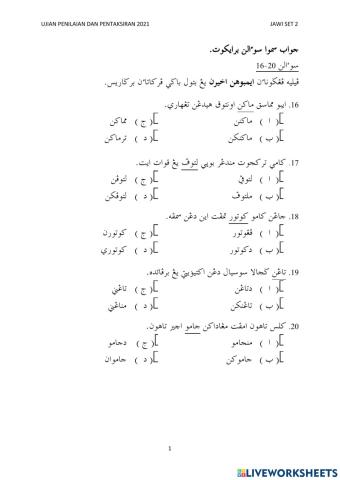 UJIAN PENILAIAN DAN PENTAKSIRAN 2021 JAWI SET 2
جواب سموا سوءالن برايكوت.
سوءالن 20-16
ڤيليه ڤڠݢوناءن ايمبوهن اخيرن يڠ بتول باݢي ڤركاتاءن برݢاريس.
16. ايبو مماسق ماكن اونتوق هيدڠن تڠهاري.
( ا ) ماكنن ( ج ) مماكن
( ب ) ماكنكن ( د ) ترماكن
17. كامي تركجوت مندڠر بوڽي لتوڤ يڠ قوات ايت.
( ا ) لتوڤي ( ج ) لتوڤن
( ب ) ملتوڤ ( د ) لتوڤكن
18. جاڠن كامو كوتور تمڤت اين دڠن سمڤه.
( ا ) ڤڠوتور ( ج ) كوتورن
( ب ) دكوتور ( د ) كوتوري
19. تاڠن ݢجالا سوسيال دڠن اكتيۏيتي يڠ برفائده.
( ا ) دتاڠن ( ج ) تاڠني
( ب ) تاڠنكن ( د ) مناڠني
20. كلس تاهون امڤت مڠاداكن جامو اخير تاهون.
( ا ) منجامو ( ج ) دجامو
( ب ) جاموكن ( د ) جاموان
1
LIVEWORKSHEETS